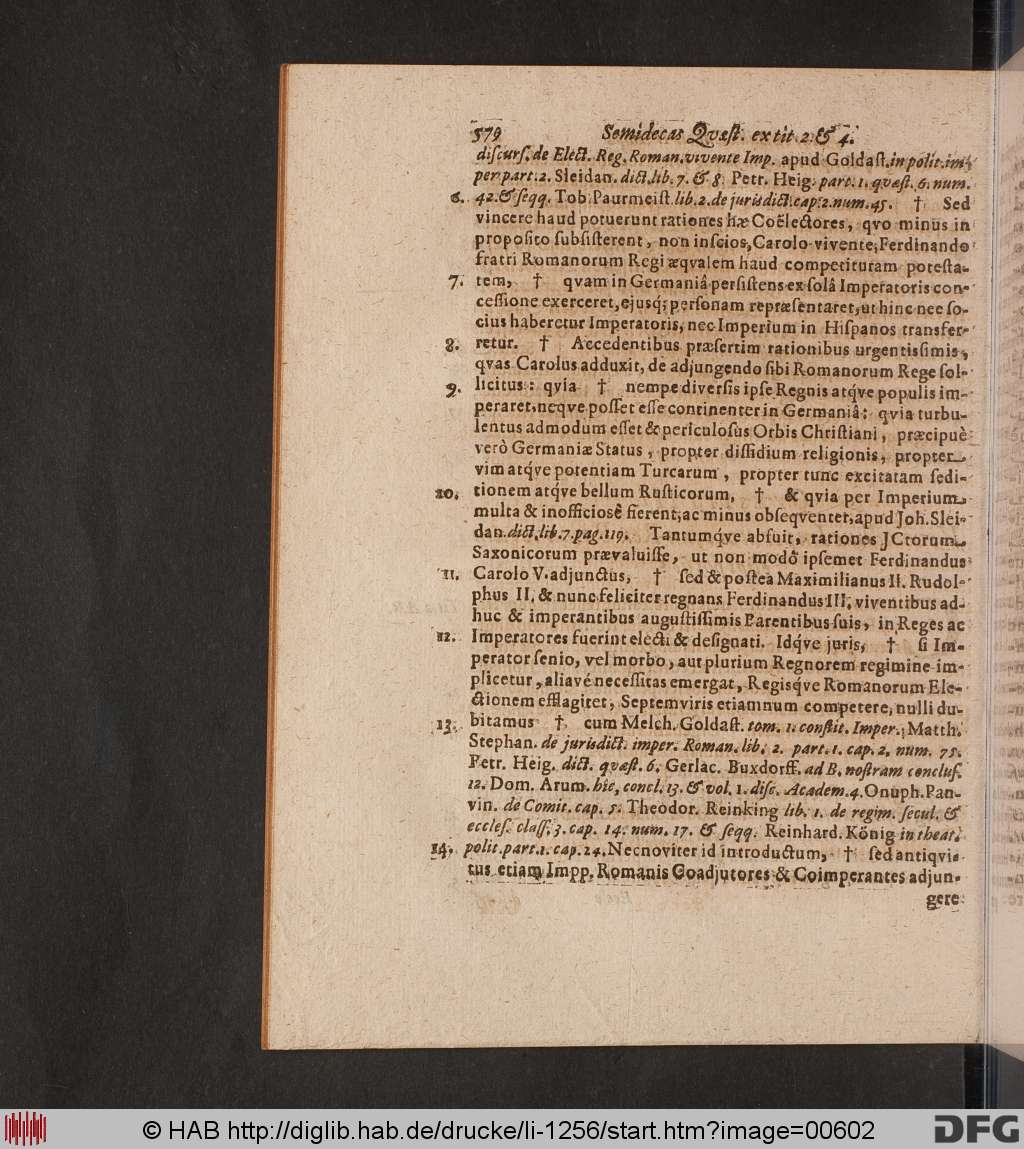 579 Semidecas Qvæst. ex tit. 2. & 4.
discurs. de Elect. Reg. Roman. vivente Imp. apud Goldast. in polit. im-
per. part. 2. Sleidan. dict. lib. 7. & 8. Petr. Heig. part. 1. quæst. 6. num.
6. 42. & seqq. Tob. Paurmeist. lib. 2. de jurisdict. cap. 2. num. 45. † Sed
vincere haud potuerunt rationes hæ Coëlectores, qvo minùs in
proposito subsisterent, non inscios, Carolo vivente, Ferdinando
fratri Romanorum Regi æqvalem haud competituram potesta-
7. tem, † qvam in Germaniâ persistens ex solâ Imperatoris con-
cessione exerceret, ejusq́; personam repræsentaret, ut hinc nec so-
cius haberetur Imperatoris, nec Imperium in Hispanos transfer-
8. retur. † Accedentibus præsertim rationibus urgentissimis,
qvas Carolus adduxit, de adjungendo sibi Romanorum Rege sol-
9. licitus: qvia † nempe diversis ipse Regnis atq́ve populis im-
peraret, neqve posset esse continenter in Germaniâ: qvia turbu-
lentus admodum esset & periculosus Orbis Christiani, præcipuè
verò Germaniæ Status, propter dissidium religionis, propter
vim atq́ve potentiam Turcarum, propter tunc excitatam sedi-
10. tionem atq́ve bellum Rusticorum, † & qvia per Imperium
multa & inofficiosè fierent, ac minus obseqventer, apud Joh. Slei-
dan. dict. lib. 7. pag. 119. Tantumq́ve abfuit, rationes JCtorum
Saxonicorum prævaluisse, ut non modò ipsemet Ferdinandus
11. Carolo V. adjunctus, † sed & postea Maximilianus II. Rudol-
phus II. & nunc feliciter regnans Ferdinandus III. viventibus ad-
huc & imperantibus augustissimis Parentibus suis, in Reges ac
12. Imperatores fuerint electi & designati. Idq́ve juris, † si Im-
perator senio, vel morbo, aut plurium Regnorem regimine im-
plicetur, aliavé necessitas emergat, Regisq́ve Romanorum Ele-
ctionem efflagitet, Septemviris etiamnum competere, nulli du-
13. bitamus † cum Melch. Goldast. tom. 1. constit. Imper. Matth.
Stephan. de jurisdict. imper. Roman. lib. 2. part. 1. cap. 2. num. 75.
Petr. Heig. dict. quæst. 6. Gerlac. Buxdorff. ad B. nostram conclus.
12. Dom. Arum. hic, concl. 13. & vol. 1. disc. Academ. 4. Onuph. Pan-
vin. de Comit. cap. 5. Theodor. Reinking lib. 1. de regim. secul. &
eccles. class. 3. cap. 14. num. 17. & seqq. Reinhard. König in theat.
14. polit. part. 1. cap. 24. Nec noviter id introductum, † sed antiqvi-
tus etiam Impp. Romanis Coadjutores & Coimperantes adjun-
gere
© HAB http://diglib.hab.de/drucke/li-1256/start.htm?image=00602
DFG